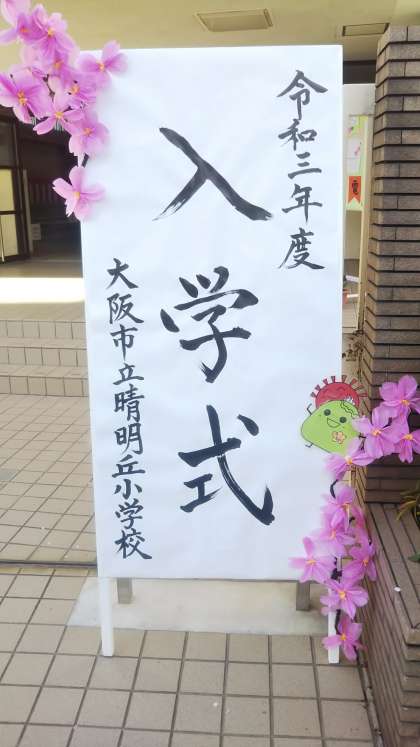 令和三年度
入学式
大阪市立晴明丘小学校